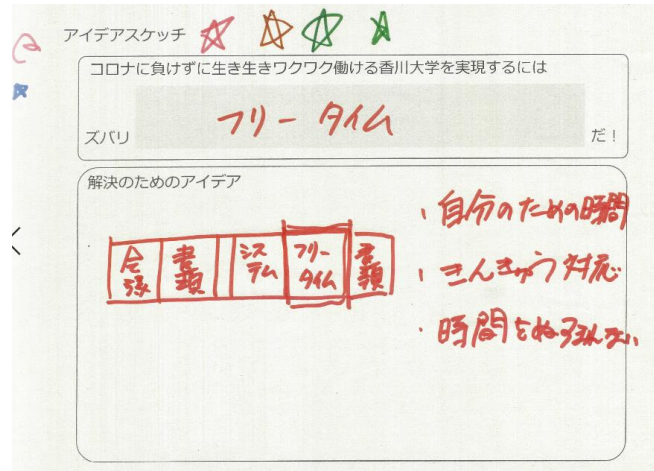 アイデアスケッチ
コロナに負けずに生き生きワクワク働ける香川大学を実現するには
ズバリ フリータイム だ！
解決のためのアイデア
会議 書類 システム フリータイム 書類
・自分のための時間
・きんきゅう対応
・時間をぬすまれない